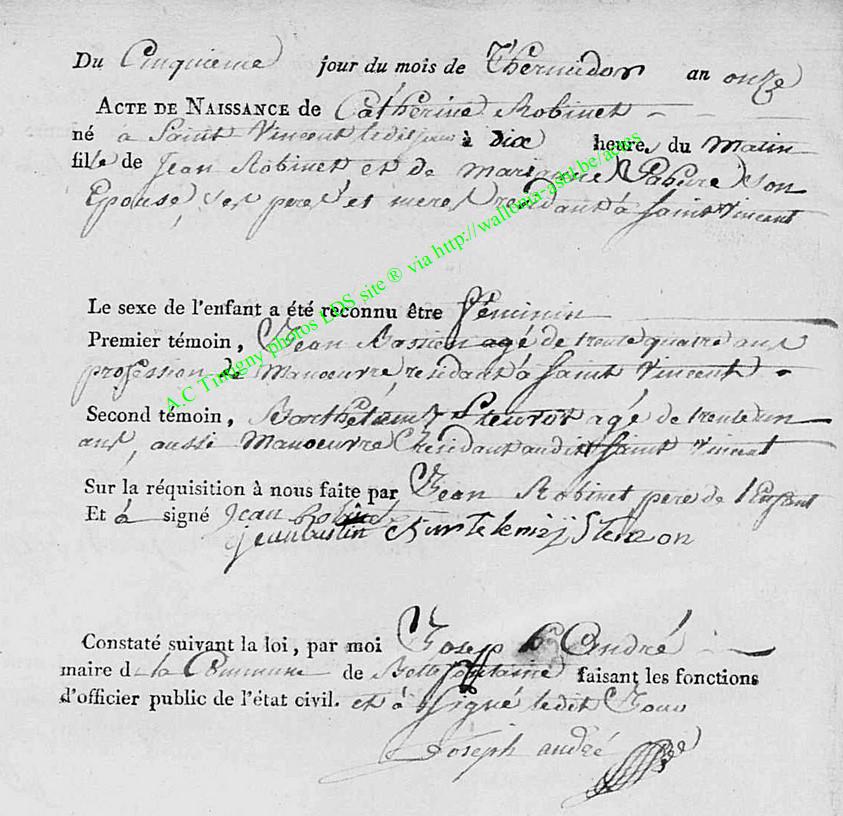 Du Cinquieme jour du mois de Thermidor an onze
ACTE DE NAISSANCE de Catherine Robinet
né à Saint Vincent ledit jour à dix heure du Matin
fille de Jean Robinet et de marianne son
Epouse, ses pere et mere residant à Saint Vincent
Le sexe de l'enfant a été reconnu être féminin
Premier témoin, Jean agé de trente quatre ans
profession de Manoeuvre, residant à Saint Vincent
Second témoin, agé de trente un
ans, aussi Manoeuvre Residant audit Saint Vincent
Sur la réquisition à nous faite par Jean Robinet pere de l'Enfant
Et à signé Jean Robinet
Constaté suivant la loi, par moi Joseph André
maire d la Commune de Bellefontaine faisant les fonctions
d'officier public de l'état civil. et à signé ledit Jour
Joseph andré
A.C Tintigny photos LDS site ® via http://wallonia-asbl.be/actes